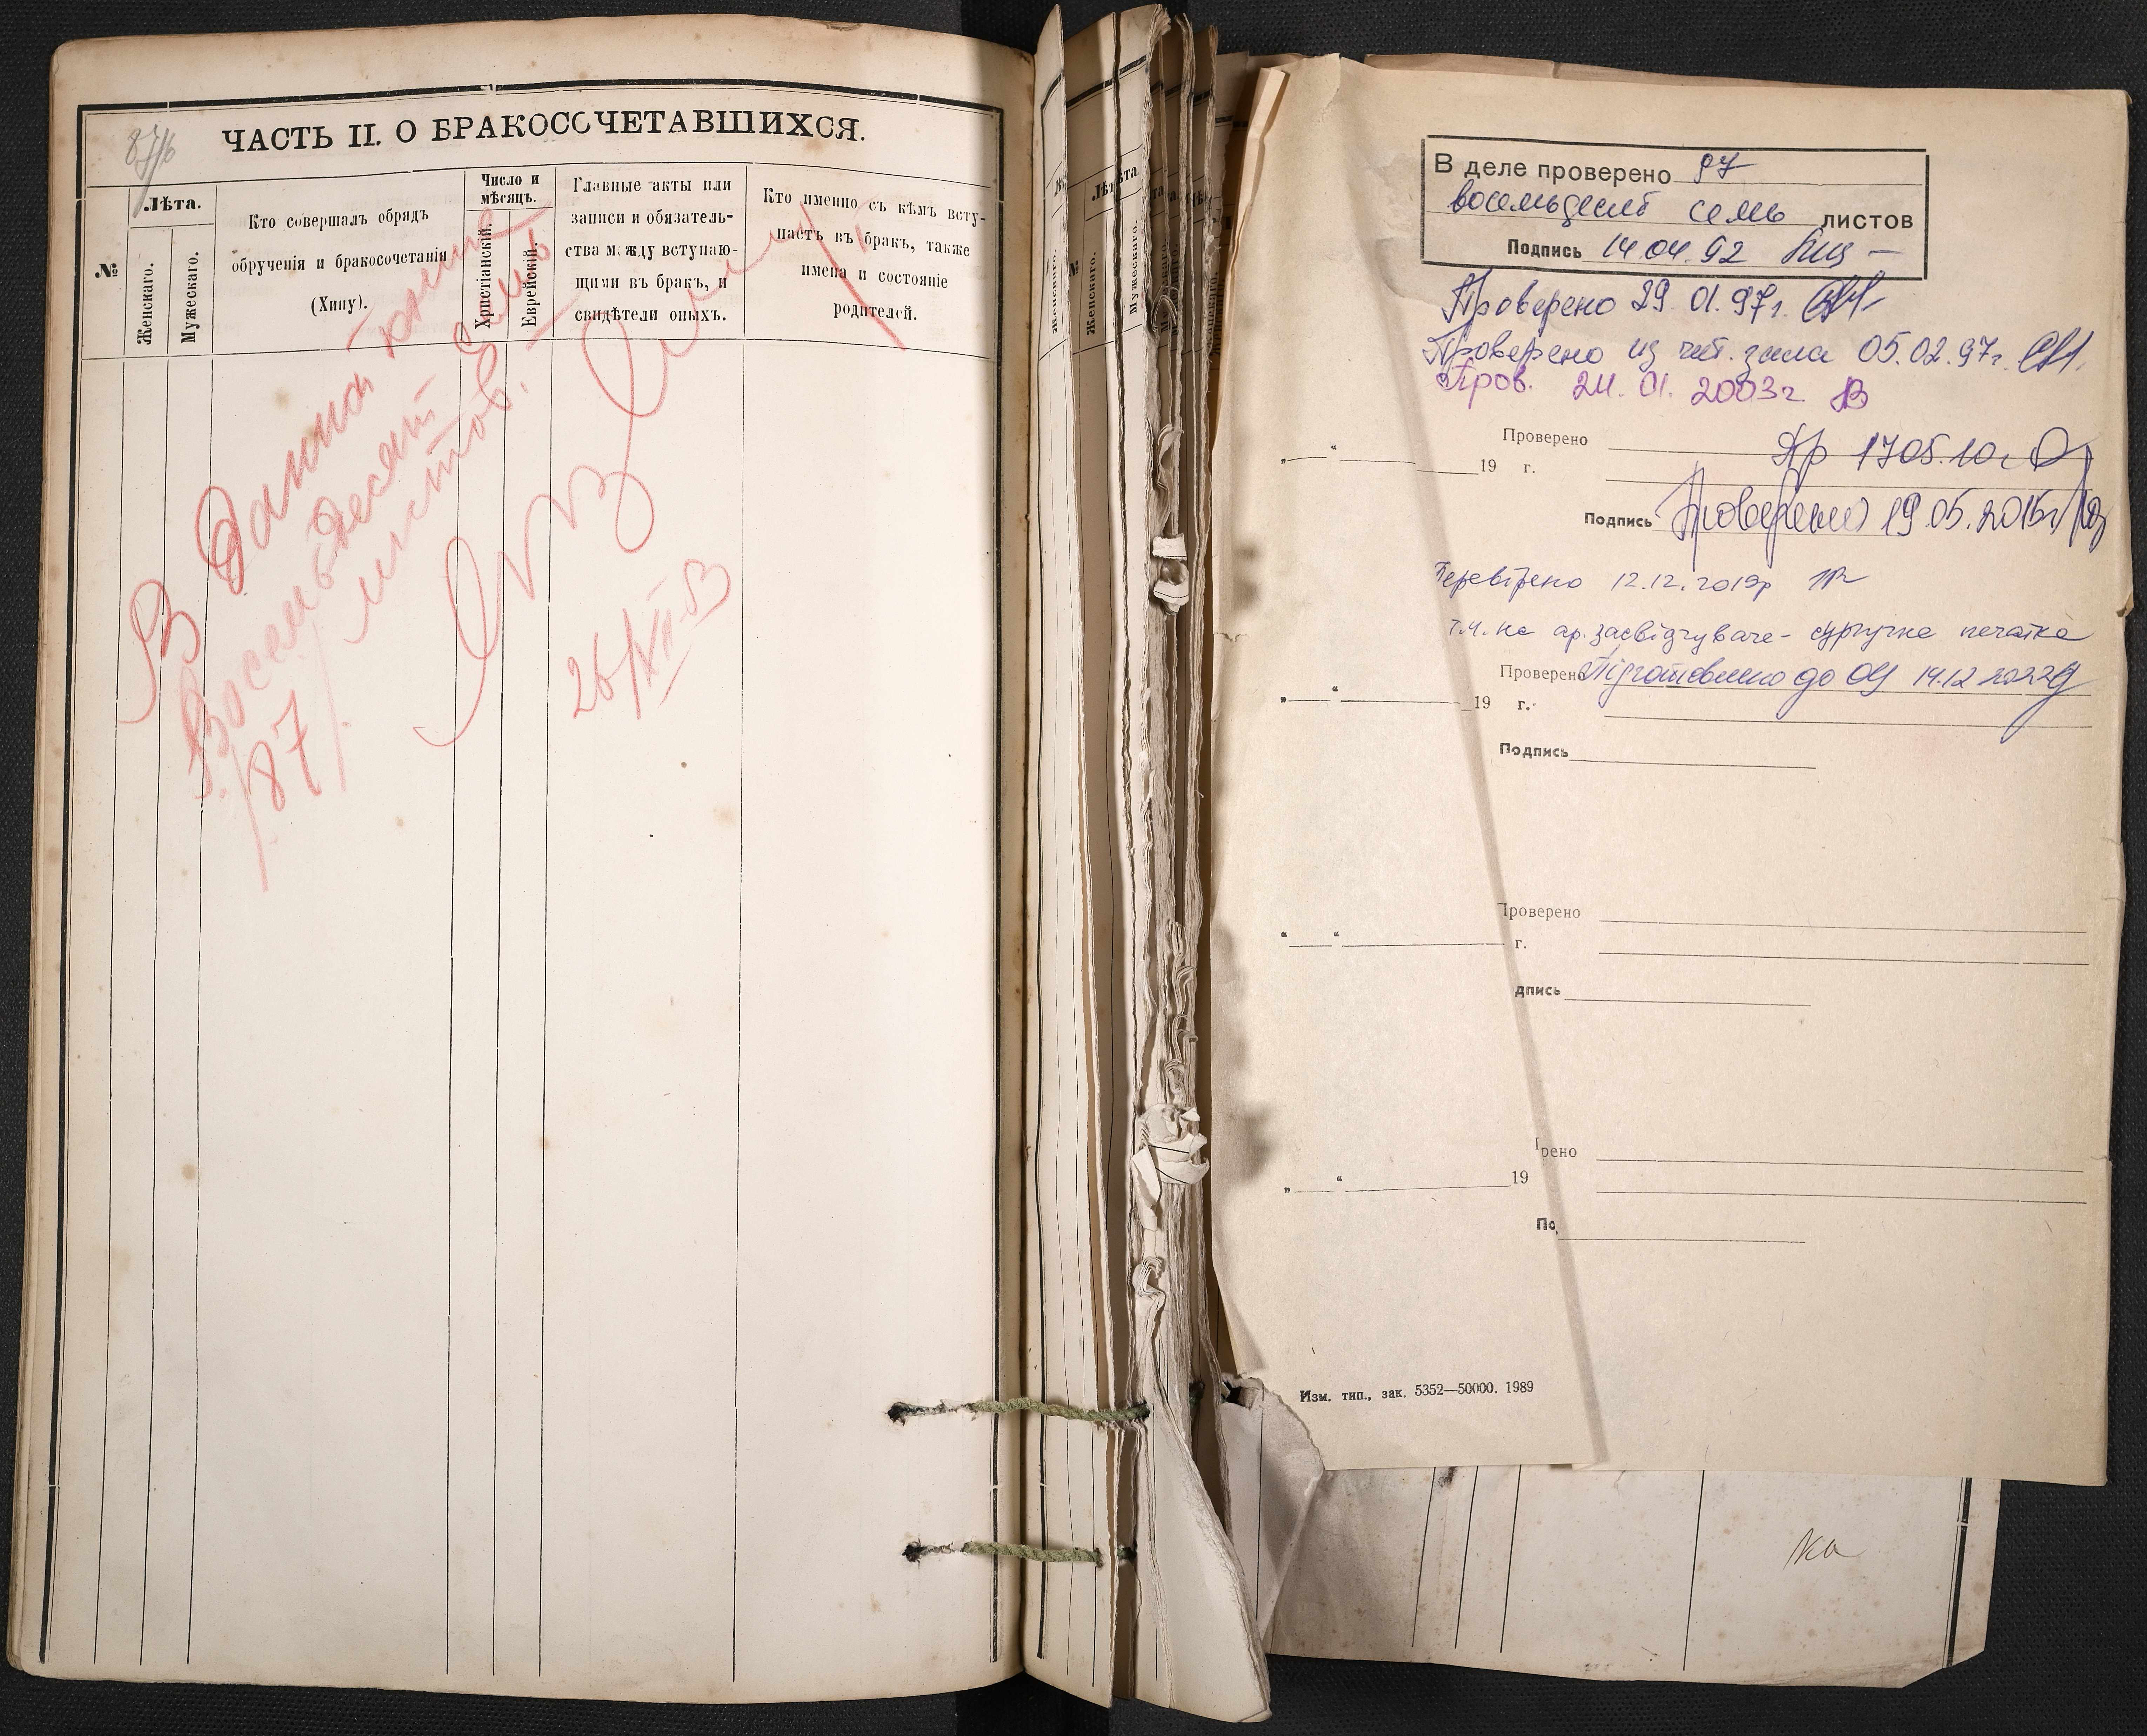 87
ЧАСТЬ II. О БРАКОСОЧЕТАВШИХСЯ.
№
Лѣта.
Женскаго.
Мужескаго.
Кто совершалъ обрядъ
обрученія и бракосочетанія
(Хупу).
Число и
мѣсяцъ.
Христіанскій.
Еврейскій.
Главные акты или
записи и обязатель-
ства между вступаю-
щими въ бракъ, и
свидѣтели оныхъ.
Кто именно съ кѣмъ всту-
паетъ въ бракъ, также
имена и состояніе
родителей.
В данной книге
Восемьдесят семь
/87/ листов.
26/XII-53
Женскаго.
Женскаго.
Мужескаго.
В деле проверено 87
восемьдесят семь листов
Подпись 14.04.92
Проверено 29.01.97г.
Проверено из чит. зала 05.02.97г.
Пров. 24.01.2003г.
Проверено
„ “ 19 г.
17.05.10г
Подпись Проверено 19.05.2015г
Перевірено 12.12.2019р
т.ч. на ар. засвідчувачі - сургучна печатка
Проверено Підготовлено до ОЦ 14.12.2022
„ “ 19 г.
Подпись
Проверено
“ “ г.
дпись
рено
„ “ 19
По
Изм. тип., зак. 5352—50000. 1989